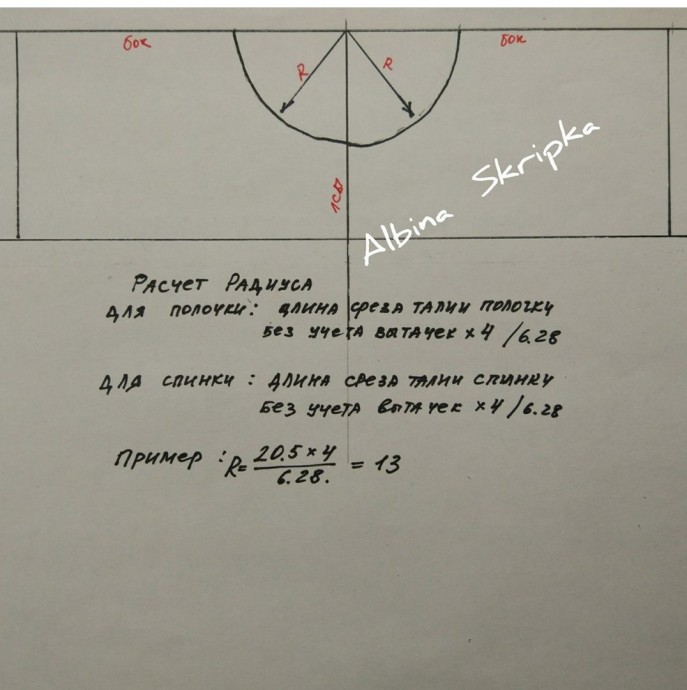 бок
бок
R
R
лсы
Albina Skripka
Расчет Радиуса
для полочки: длина среза талии полочку
без учета вытачек x4 /6.28
для спинки: длина среза талии спинку
без учета вытачек x4/6.28
Пример: R= 20.5 x 4 / 6.28. = 13